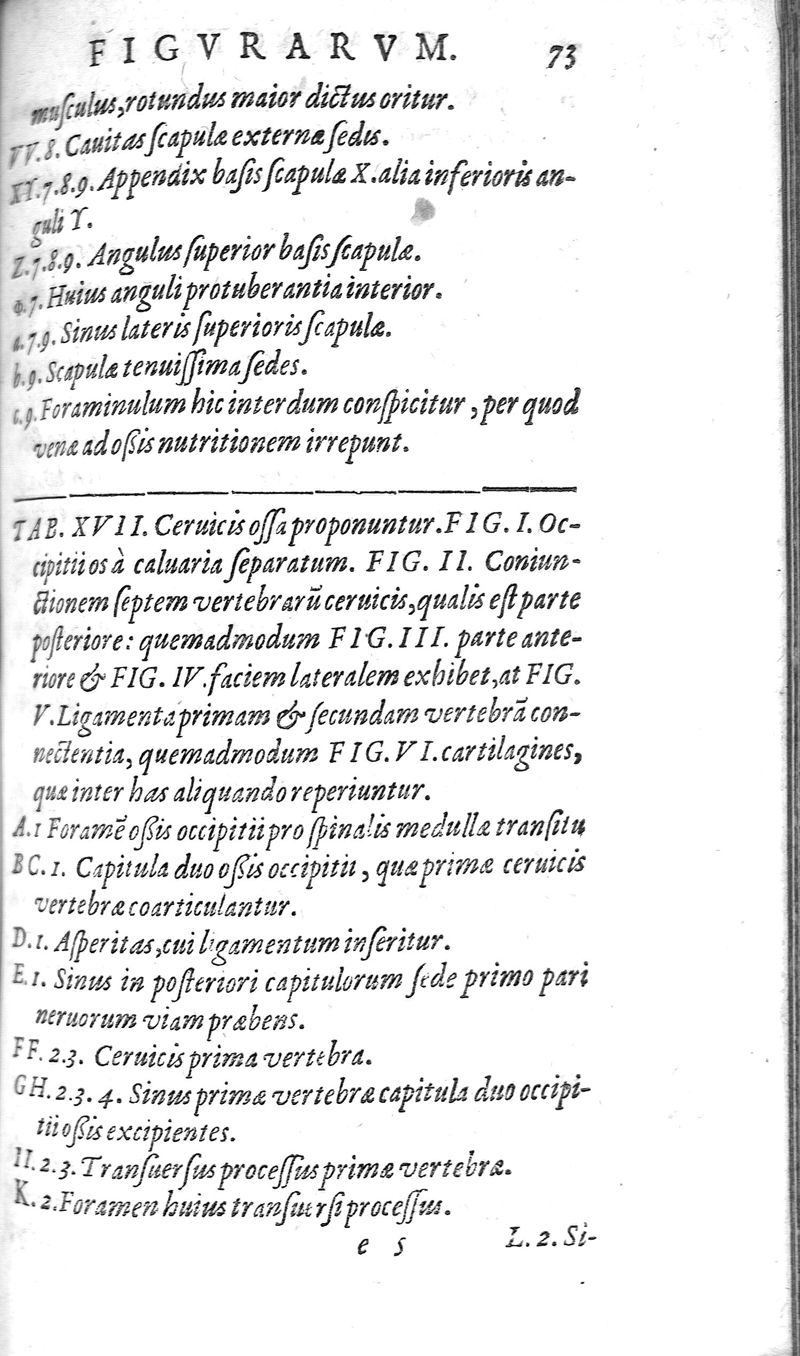 FIGVRARVM. 73
muſculus, rotundus maior dictus oritur.
VV. 8. Cauitas ſcapulæ externæ ſedis.
XY. 7. 8. 9. Appendix baſis ſcapulæ X. alia inferioris an-
guli Y.
Z. 7. 8. 9. Angulus ſuperior baſis ſcapulæ.
7. Huius anguli protuberantia interior.
a. 7. 9. Sinus lateris ſuperioris ſcapulæ.
b. 9. Scapulæ tenuiſſima ſedes.
c. 9. Foraminulum hic interdum conſpicitur, per quod
venæ ad oßis nutritionem irrepunt.
TAB. XVII. Ceruicis oſſa proponuntur. FIG. I. Oc-
cipitii os à caluaria ſeparatum. FIG. II. Coniun-
ctionem ſeptem vertebrarū ceruicis, qualis eſt parte
poſteriore: quemadmodum FIG. III. parte ante-
riore & FIG. IV. faciem lateralem exhibet, at FIG.
V. Ligamenta primam & ſecundam vertebrā con-
nectentia, quemadmodum FIG. VI. cartilagines,
quæ inter has aliquando reperiuntur.
A. 1 Foramē oßis occipitii pro ſpinalis medullæ tranſitu
BC. 1. Capitula duo oßis occipitii, quæ primæ ceruicis
vertebræ coarticulantur.
D. 1. Aſperitas, cui ligamentum inſeritur.
E. 1. Sinus in poſteriori capitulorum ſede primo pari
neruorum viam præbens.
FF. 2. 3. Ceruicis prima vertebra.
GH. 2. 3. 4. Sinus primæ vertebræ capitula duo occipi-
tii oßis excipientes.
II. 2. 3. Tranſuerſus proceſſus primæ vertebræ.
K. 2. Foramen huius tranſuerſi proceſſus.
e 5 L. 2. Si-